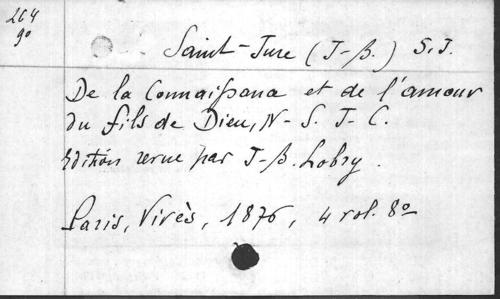 264
90
Saint-Jure (J-B.) S.J.
De la Connaissance et de l'amour
du fils de Dieu, N-S. J-C.
Edition revue par J-B. Lobry.
Paris, Vivès, 1876, 4 vol. 8º